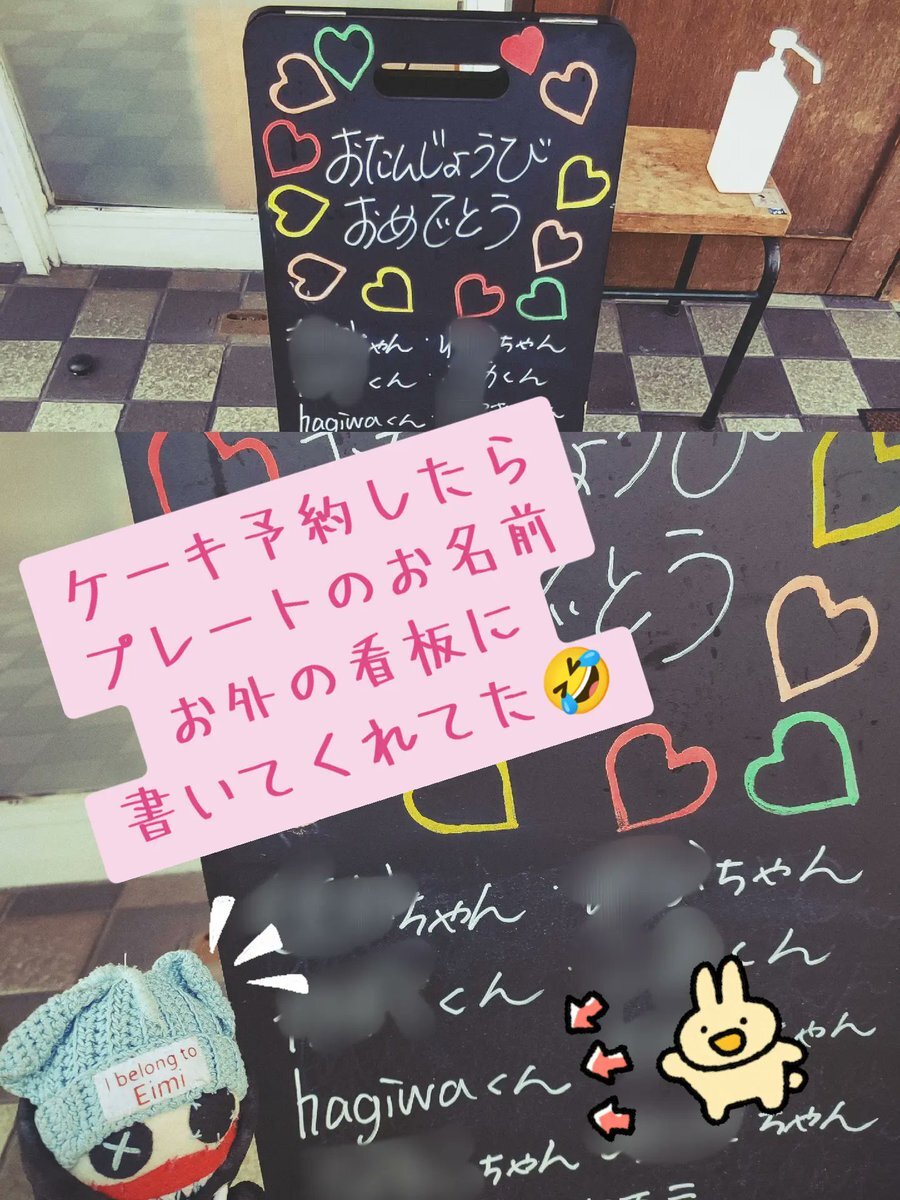 おたんじょうび
おめでとう
ちゃん・ゆ ちゃん
くん くん
hagiwaくん・
ケーキ予約したら
プレートのお名前
お外の看板に
書いてくれてた🤣
ょうび
でとう
ちゃん・ ちゃん
くん・ くん
hagiwaくん ちゃん
ちゃん ちゃん
I belong to
Eimi